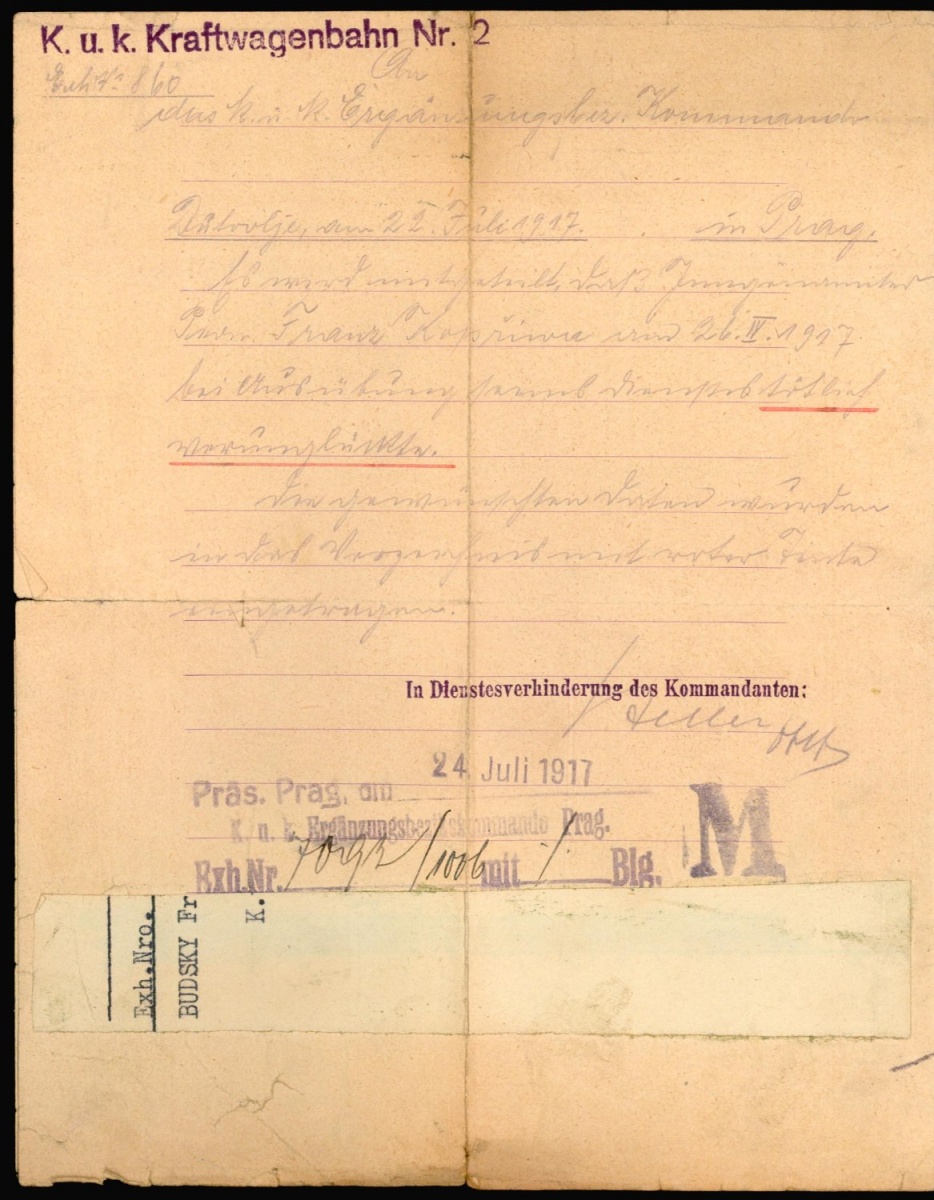 K. u. k. Kraftwagenbahn Nr. 2
Exh Nr 860
An
das k. u. k. Ergänzungsbez. Kommando
Dutovlje, am 22. Juli 1917. in Prag.
Es wird mitgeteilt, daß
Franz am 26. IV. 1917
bei Ausübung seines Dienstes tötlich
verunglückte.
Die gewünschten Daten wurden
in das Verzeichnis mit roter Tinte
eingetragen.
In Dienstesverhinderung des Kommandanten:
24 Juli 1917
Präs. Prag, am
K. u. k. Ergänzungsbezirkskommando Prag.
M
Exh. Nr. /1006 mit /. Blg.
Exh.Nro.
BUDSKY Fr
K.